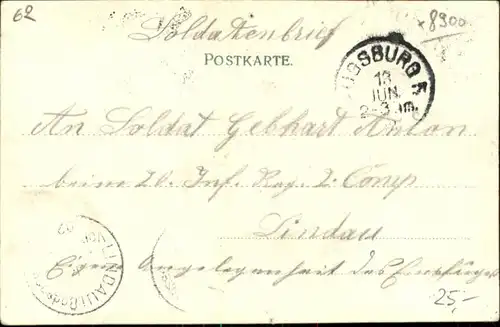 62
Soldatenbrief
× 8900
POSTKARTE.
UGSBURG 5
13
JUN.
2-3 Nm.
An Soldat Gebhart Anton
beim 20. Inf. Reg. 2. Comp
Lindau
LINDAU i Bodensee
Eigene Angelegenheit des Empfängers
25,-